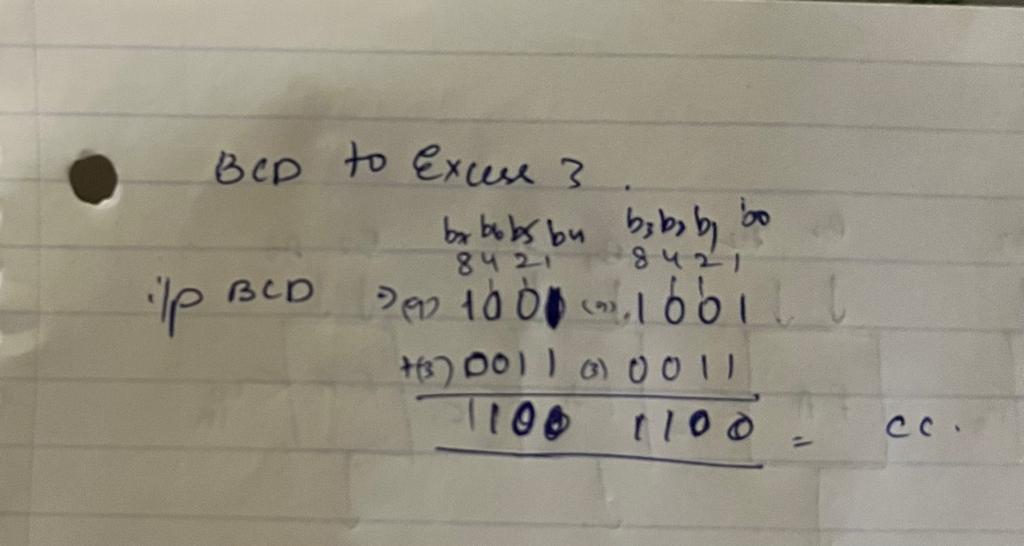 BCD to Excess 3.
b7 b6 b5 b4 b3 b2 b1 b0
8 4 2 1 8 4 2 1
i/p BCD ⇒ (9) 1001 (9) 1001
+(3) 0011 (3) 0011
1100 1100 = CC.